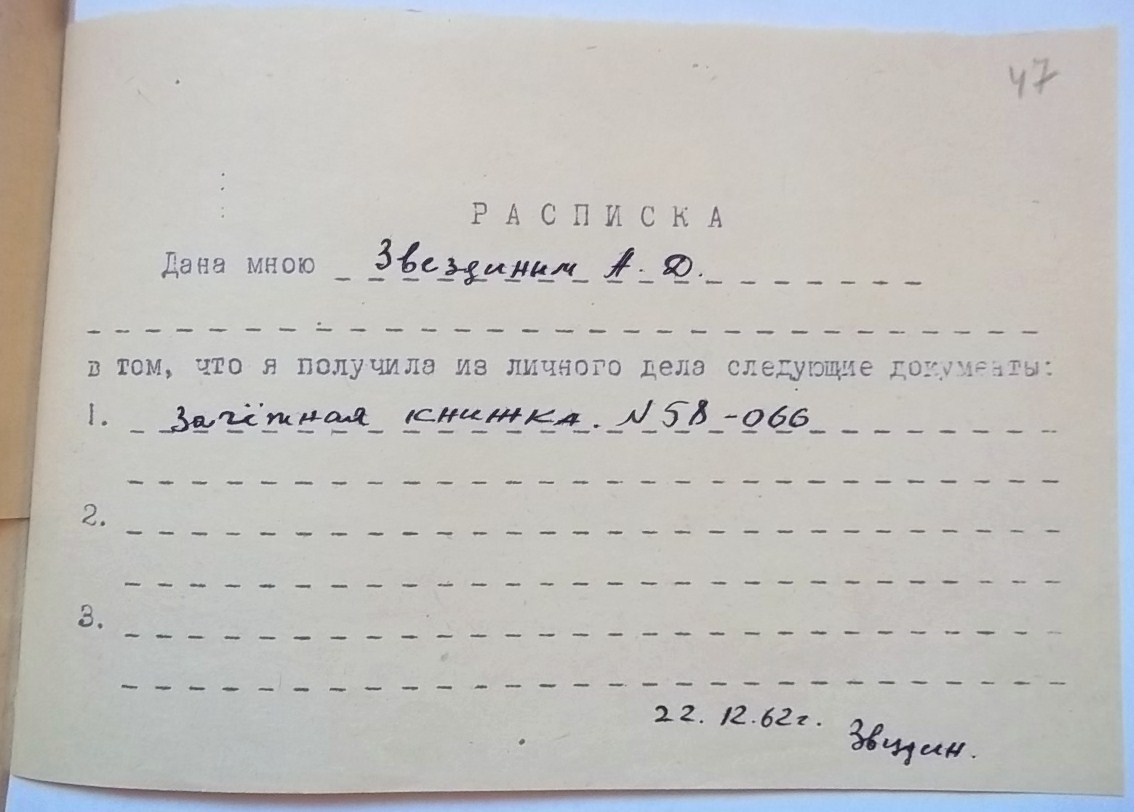 47
РАСПИСКА
Дана мною Звездиним А. Д.
в том, что я получила из личного дела следующие документы:
1. Зачётная книжка. N 58-066
2.
3.
22.12.62г. Звездин.